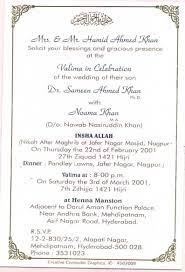 Mrs. & Mr. Hamid Ahmed Khan
Solicit your blessings and gracious presence
at the
Valima in Celebration
of the wedding of their son
Dr. Sameen Ahmed Khan
Ph.D.
with
Noama Khan
M.A
(D/o: Nawab Nasiruddin Khan)
INSHA ALLAH
(Nikah After Maghrib at Jafer Nagar Masjid, Nagpur
On Thursday the 22nd of February 2001
27th Ziquad 1421 Hijri
Dinner : Pandley Lawns, Jafer Nagar, Nagpur;)
Valima at : 8-00 p.m.
On Saturday the 3rd of March 2001,
7th Zilhija 1421 Hijri
at Henna Mansion
Adjacent to Darul Aman Function Palace
Near Amber Bakery, Mehdipatnam,
Asif Nagar Road, Hyderabad.
R.S.V.P.
12-2-830/25/2, Alapati Nagar,
Mehdipatnam, Hyderabad - 500 028
Phone : 3531023
Creative Computer Graphics, ✆ 4563009